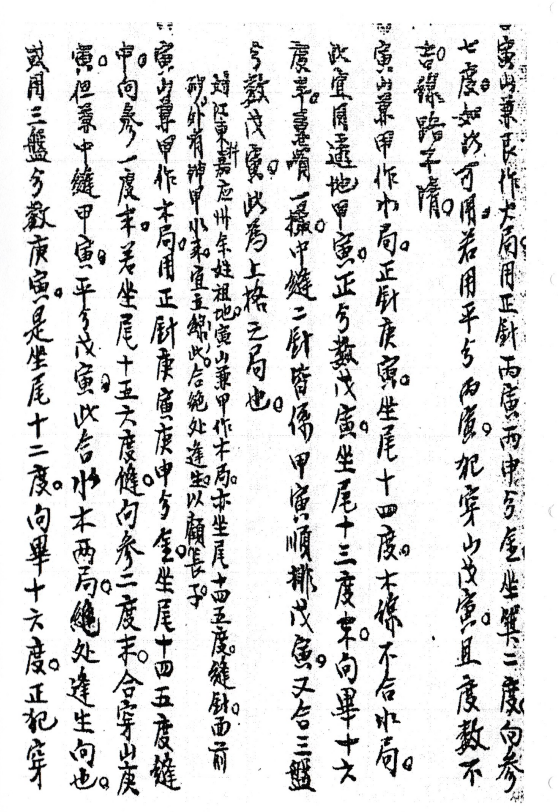 寅山兼艮作火局用正針丙寅丙申分金坐箕二度向參
七度如此可用若用平分丙寅犯穿山戊寅且度數不
吉線路不清
寅山兼甲作水局正針庚寅坐尾十四度大線不合水局
此宜用透地甲寅正分數戊寅坐尾十三度末向畢十六
度半 中縫二針皆係甲寅順排戊寅又合三盤
分數戊寅此為上格之局也
江東 嘉應州余姓祖地寅山兼甲作木局亦坐尾十四五度縫針面前
砂外有 甲水來宜立線此合絕处逢生以顧長子
寅山兼甲作木局用正針庚寅庚申分金坐尾十四五度縫
中向參一度末若坐尾十五六度縫向參二度末合穿山庚
寅但兼中縫甲寅平分戊寅此合水木两局絕处逢生向也
或用三盤分數庚寅是坐尾十二度向畢十六度正犯穿